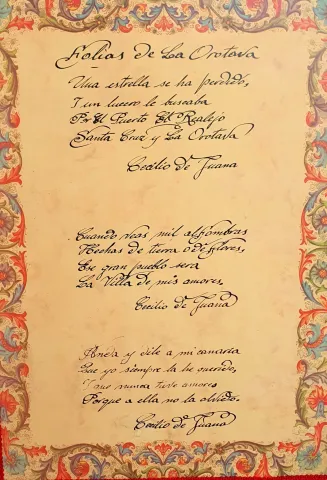 Folías de La Orotava
Una estrella se ha perdido,
Y un lucero le buscaba
Por El Puerto El Realejo
Santa Cruz y La Orotava
Cecilio de Juana
Cuando veas mil alfombras
Hechas de tierra o de flores,
Ese gran pueblo será
La Villa de mis amores,
Cecilio de Juana
y dile a mi canaria
Que yo siempre la he querido,
Y que nunca tuve amores
Porque a ella no la olvido.
Cecilio de Juana